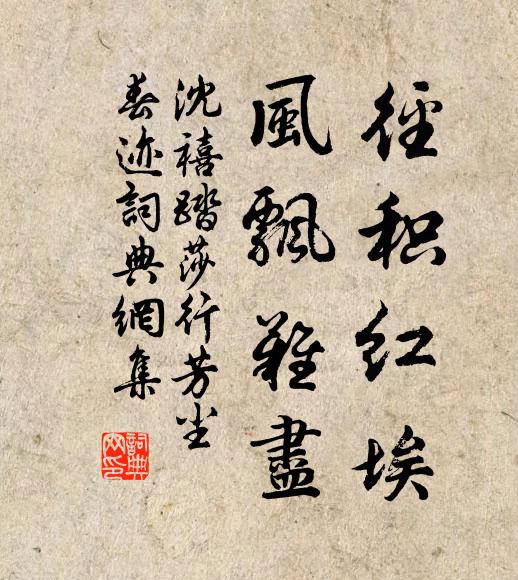 径积红埃
風飄難盡
沈禧踏莎行芳尘
春迹詞典網集
詞典
网印